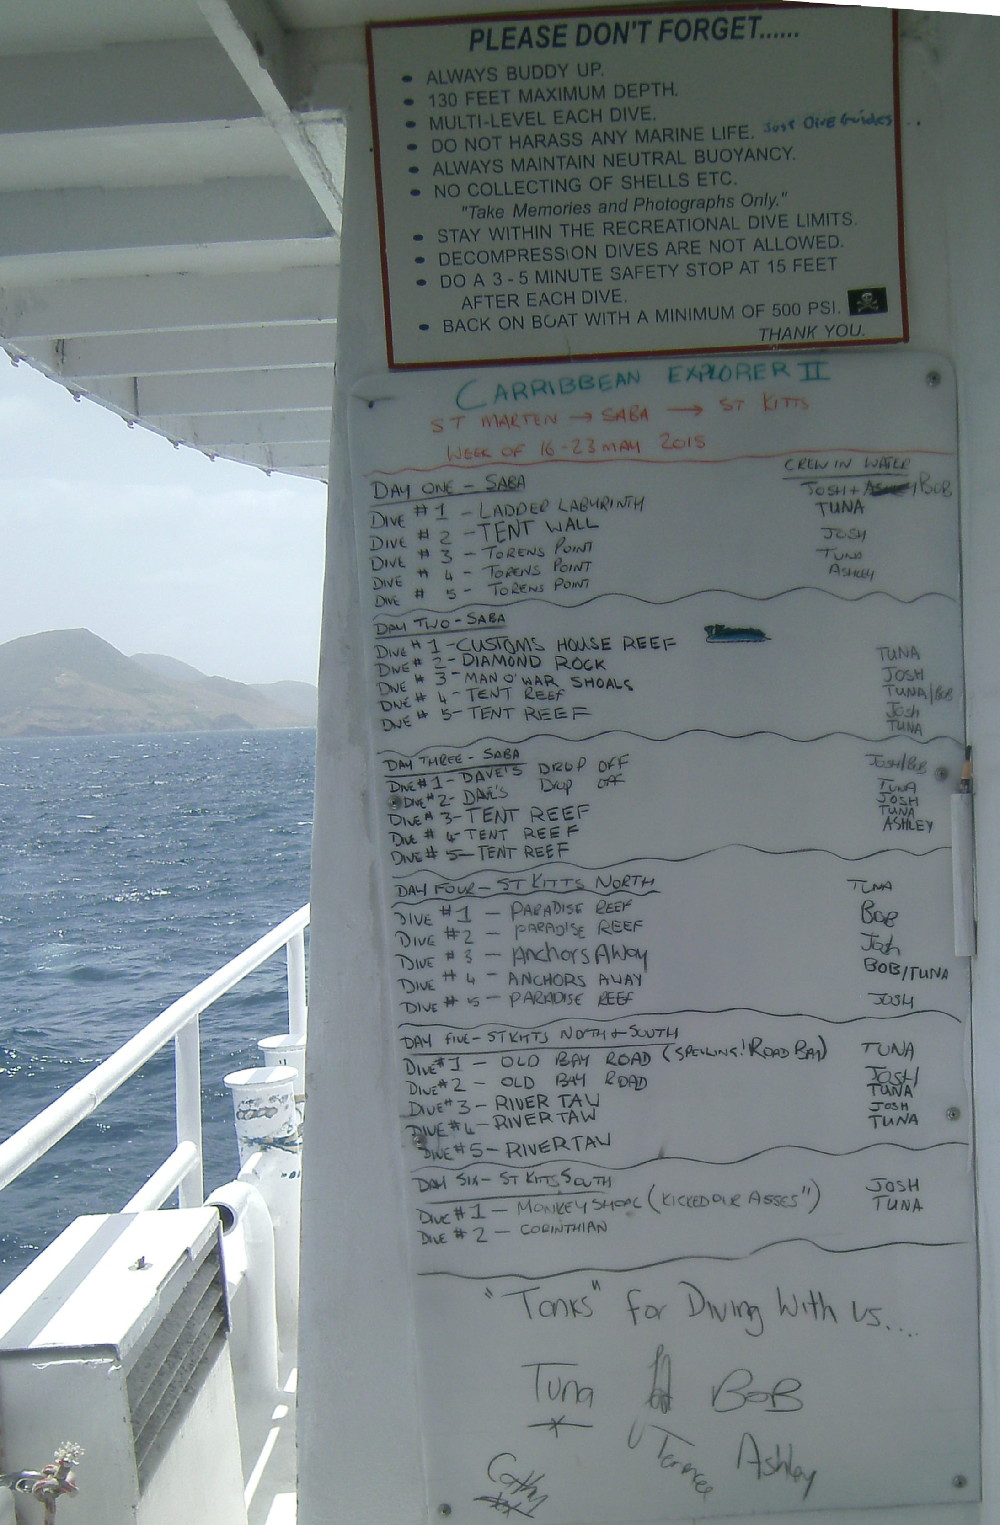 PLEASE DON'T FORGET......
• ALWAYS BUDDY UP.
• 130 FEET MAXIMUM DEPTH.
• MULTI-LEVEL EACH DIVE.
• DO NOT HARASS ANY MARINE LIFE. Just Dive Guides
• ALWAYS MAINTAIN NEUTRAL BUOYANCY.
• NO COLLECTING OF SHELLS ETC.
"Take Memories and Photographs Only."
• STAY WITHIN THE RECREATIONAL DIVE LIMITS.
• DECOMPRESSION DIVES ARE NOT ALLOWED.
• DO A 3 - 5 MINUTE SAFETY STOP AT 15 FEET
AFTER EACH DIVE.
• BACK ON BOAT WITH A MINIMUM OF 500 PSI.
THANK YOU.
CARRIBBEAN EXPLORER II
ST MARTEN → SABA → ST KITTS
WEEK OF 16-23 MAY 2015
CREW IN WATER
DAY ONE - SABA
DIVE # 1 - LADDER LABYRINTH JOSH + ASHLEY/BOB
DIVE # 2 - TENT WALL TUNA
DIVE # 3 - TORENS POINT JOSH
DIVE # 4 - TORENS POINT TUNA
DIVE # 5 - TORENS POINT ASHLEY
DAY TWO - SABA
DIVE # 1 - CUSTOMS HOUSE REEF TUNA
DIVE # 2 - DIAMOND ROCK JOSH
DIVE # 3 - MAN O'WAR SHOALS TUNA/BOB
DIVE # 4 - TENT REEF Josh
DIVE # 5 - TENT REEF TUNA
DAY THREE - SABA
DIVE # 1 - DAVE'S DROP OFF Josh/Bob
DIVE # 2 - DAVE'S Drop OFF TUNA
DIVE # 3 - TENT REEF JOSH
DIVE # 4 - TENT REEF TUNA
DIVE # 5 - TENT REEF ASHLEY
DAY FOUR - ST KITTS NORTH
DIVE # 1 - PARADISE REEF TUNA
DIVE # 2 - PARADISE REEF BOB
DIVE # 3 - AnchorsAWay Josh
DIVE # 4 - ANCHORS AWAY BOB/TUNA
DIVE # 5 - PARADISE REEF JOSH
DAY FIVE - ST KITTS NORTH + SOUTH
DIVE # 1 - OLD BAY ROAD (SPELLING! ROAD BAY) TUNA
DIVE # 2 - OLD BAY ROAD JOSH
DIVE # 3 - RIVER TAW TUNA
DIVE # 4 - RIVER TAW JOSH
DIVE # 5 - RIVER TAW TUNA
DAY SIX - ST KITTS SOUTH
DIVE # 1 - MONKEY SHOAL (KICKED OUR ASSES") JOSH
DIVE # 2 - CORINTHIAN TUNA
"Tanks" for Diving With us....
Tuna BOB
Terence Ashley
Cathy